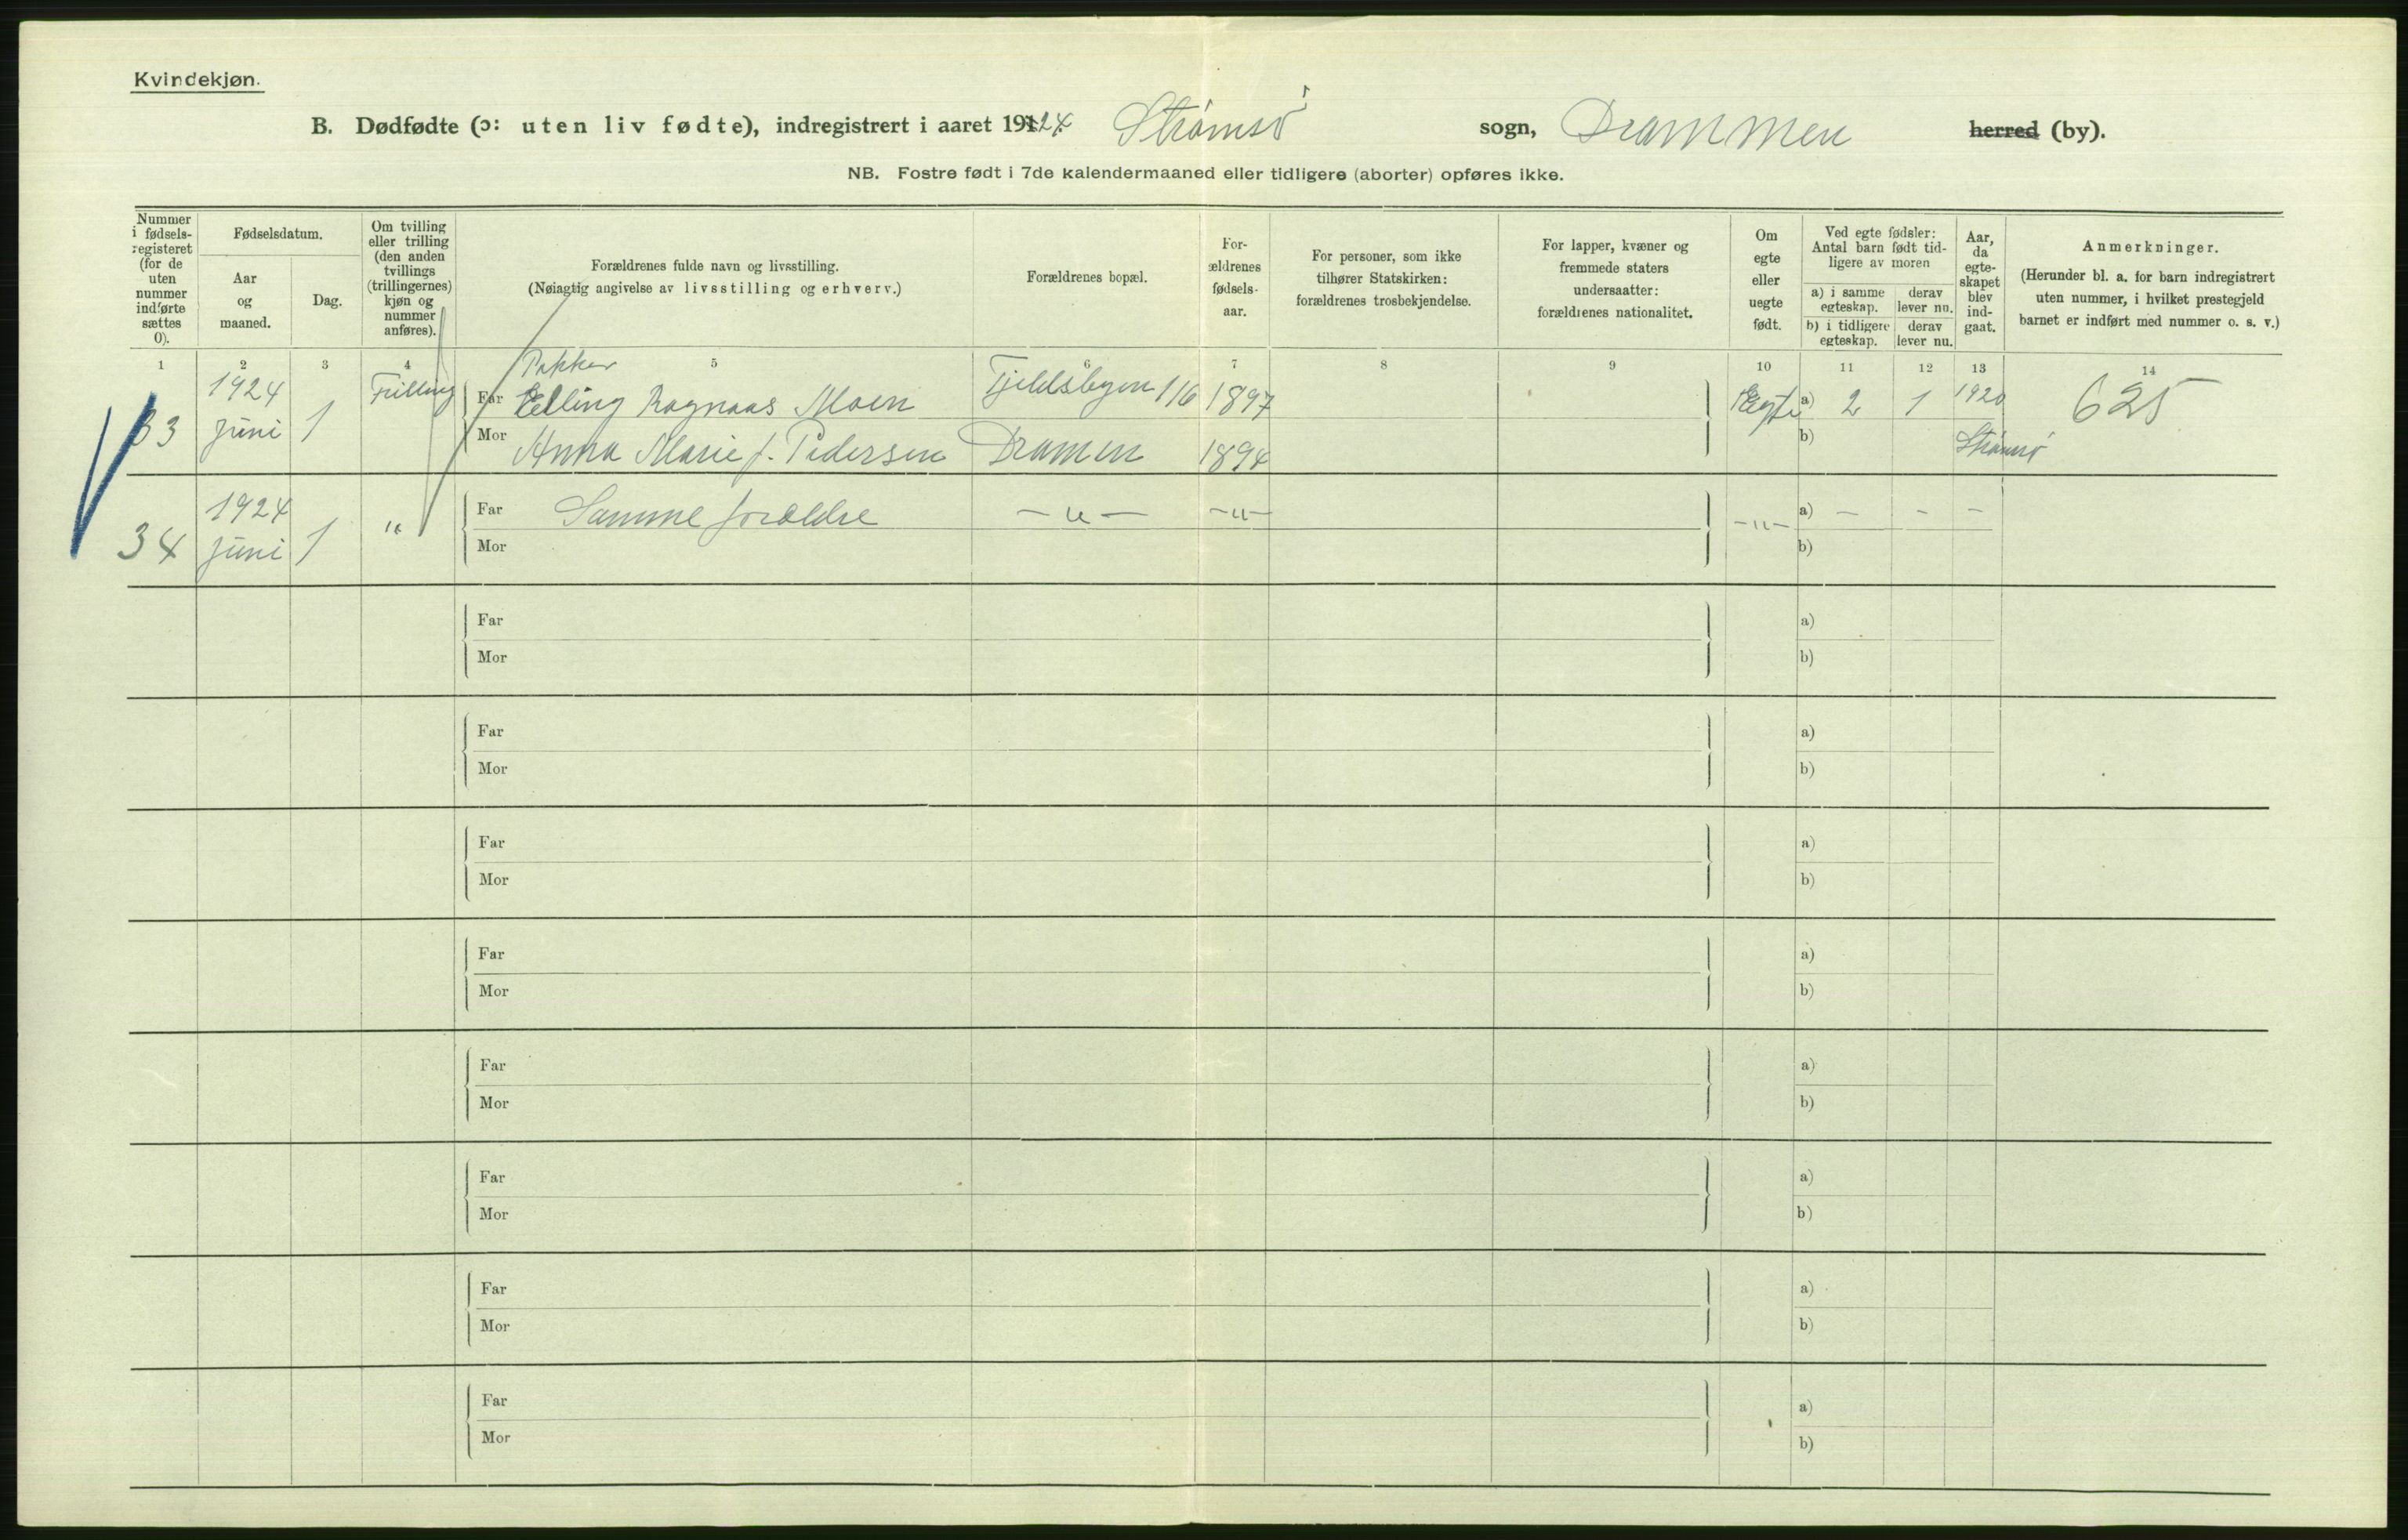 Kvindekjøn.
B. Dødfødte (ɔ: uten liv fødte), indregistrert i aaret 1924 Strømsø sogn, Drammen herred (by).
NB. Fostre født i 7de kalendermaaned eller tidligere (aborter) opføres ikke.
Nummer i fødsels-registeret (for de uten nummer indførte sættes 0).
Fødselsdatum.
Aar og maaned.
Dag.
Om tvilling eller trilling (den anden tvillings (trillingernes) kjøn og nummer anføres).
Forældrenes fulde navn og livsstilling.
(Nøiagtig angivelse av livsstilling og erhverv.)
Forældrenes bopæl.
For-ældrenes fødsels-aar.
For personer, som ikke tilhører Statskirken: forældrenes trosbekjendelse.
For lapper, kvæner og fremmede staters undersaatter: forældrenes nationalitet.
Om egte eller uegte født.
Ved egte fødsler: Antal barn født tid-ligere av moren
a) i samme egteskap.
derav lever nu.
b) i tidligere egteskap.
derav lever nu.
Aar, da egte-skapet blev ind-gaat.
Anmerkninger.
(Herunder bl. a. for barn indregistrert uten nummer, i hvilket prestegjeld barnet er indført med nummer o. s. v.)
1 2 3 4 5 6 7 8 9 10 11 12 13 14
33 1924 juni 1 Trilling
Pakker
Far Elling Ragnaas Moen
Mor Anna Marie f. Pedersen
116
Dramen
1897
1894
Egte a) 2 1 1920
b) Strømsø
625
34 1924 juni 1 "
Far Samme forældre -"- -"- -"- a) - - -
Mor b)
Far a)
Mor b)
Far a)
Mor b)
Far a)
Mor b)
Far a)
Mor b)
Far a)
Mor b)
Far a)
Mor b)
Far a)
Mor b)
Far a)
Mor b)